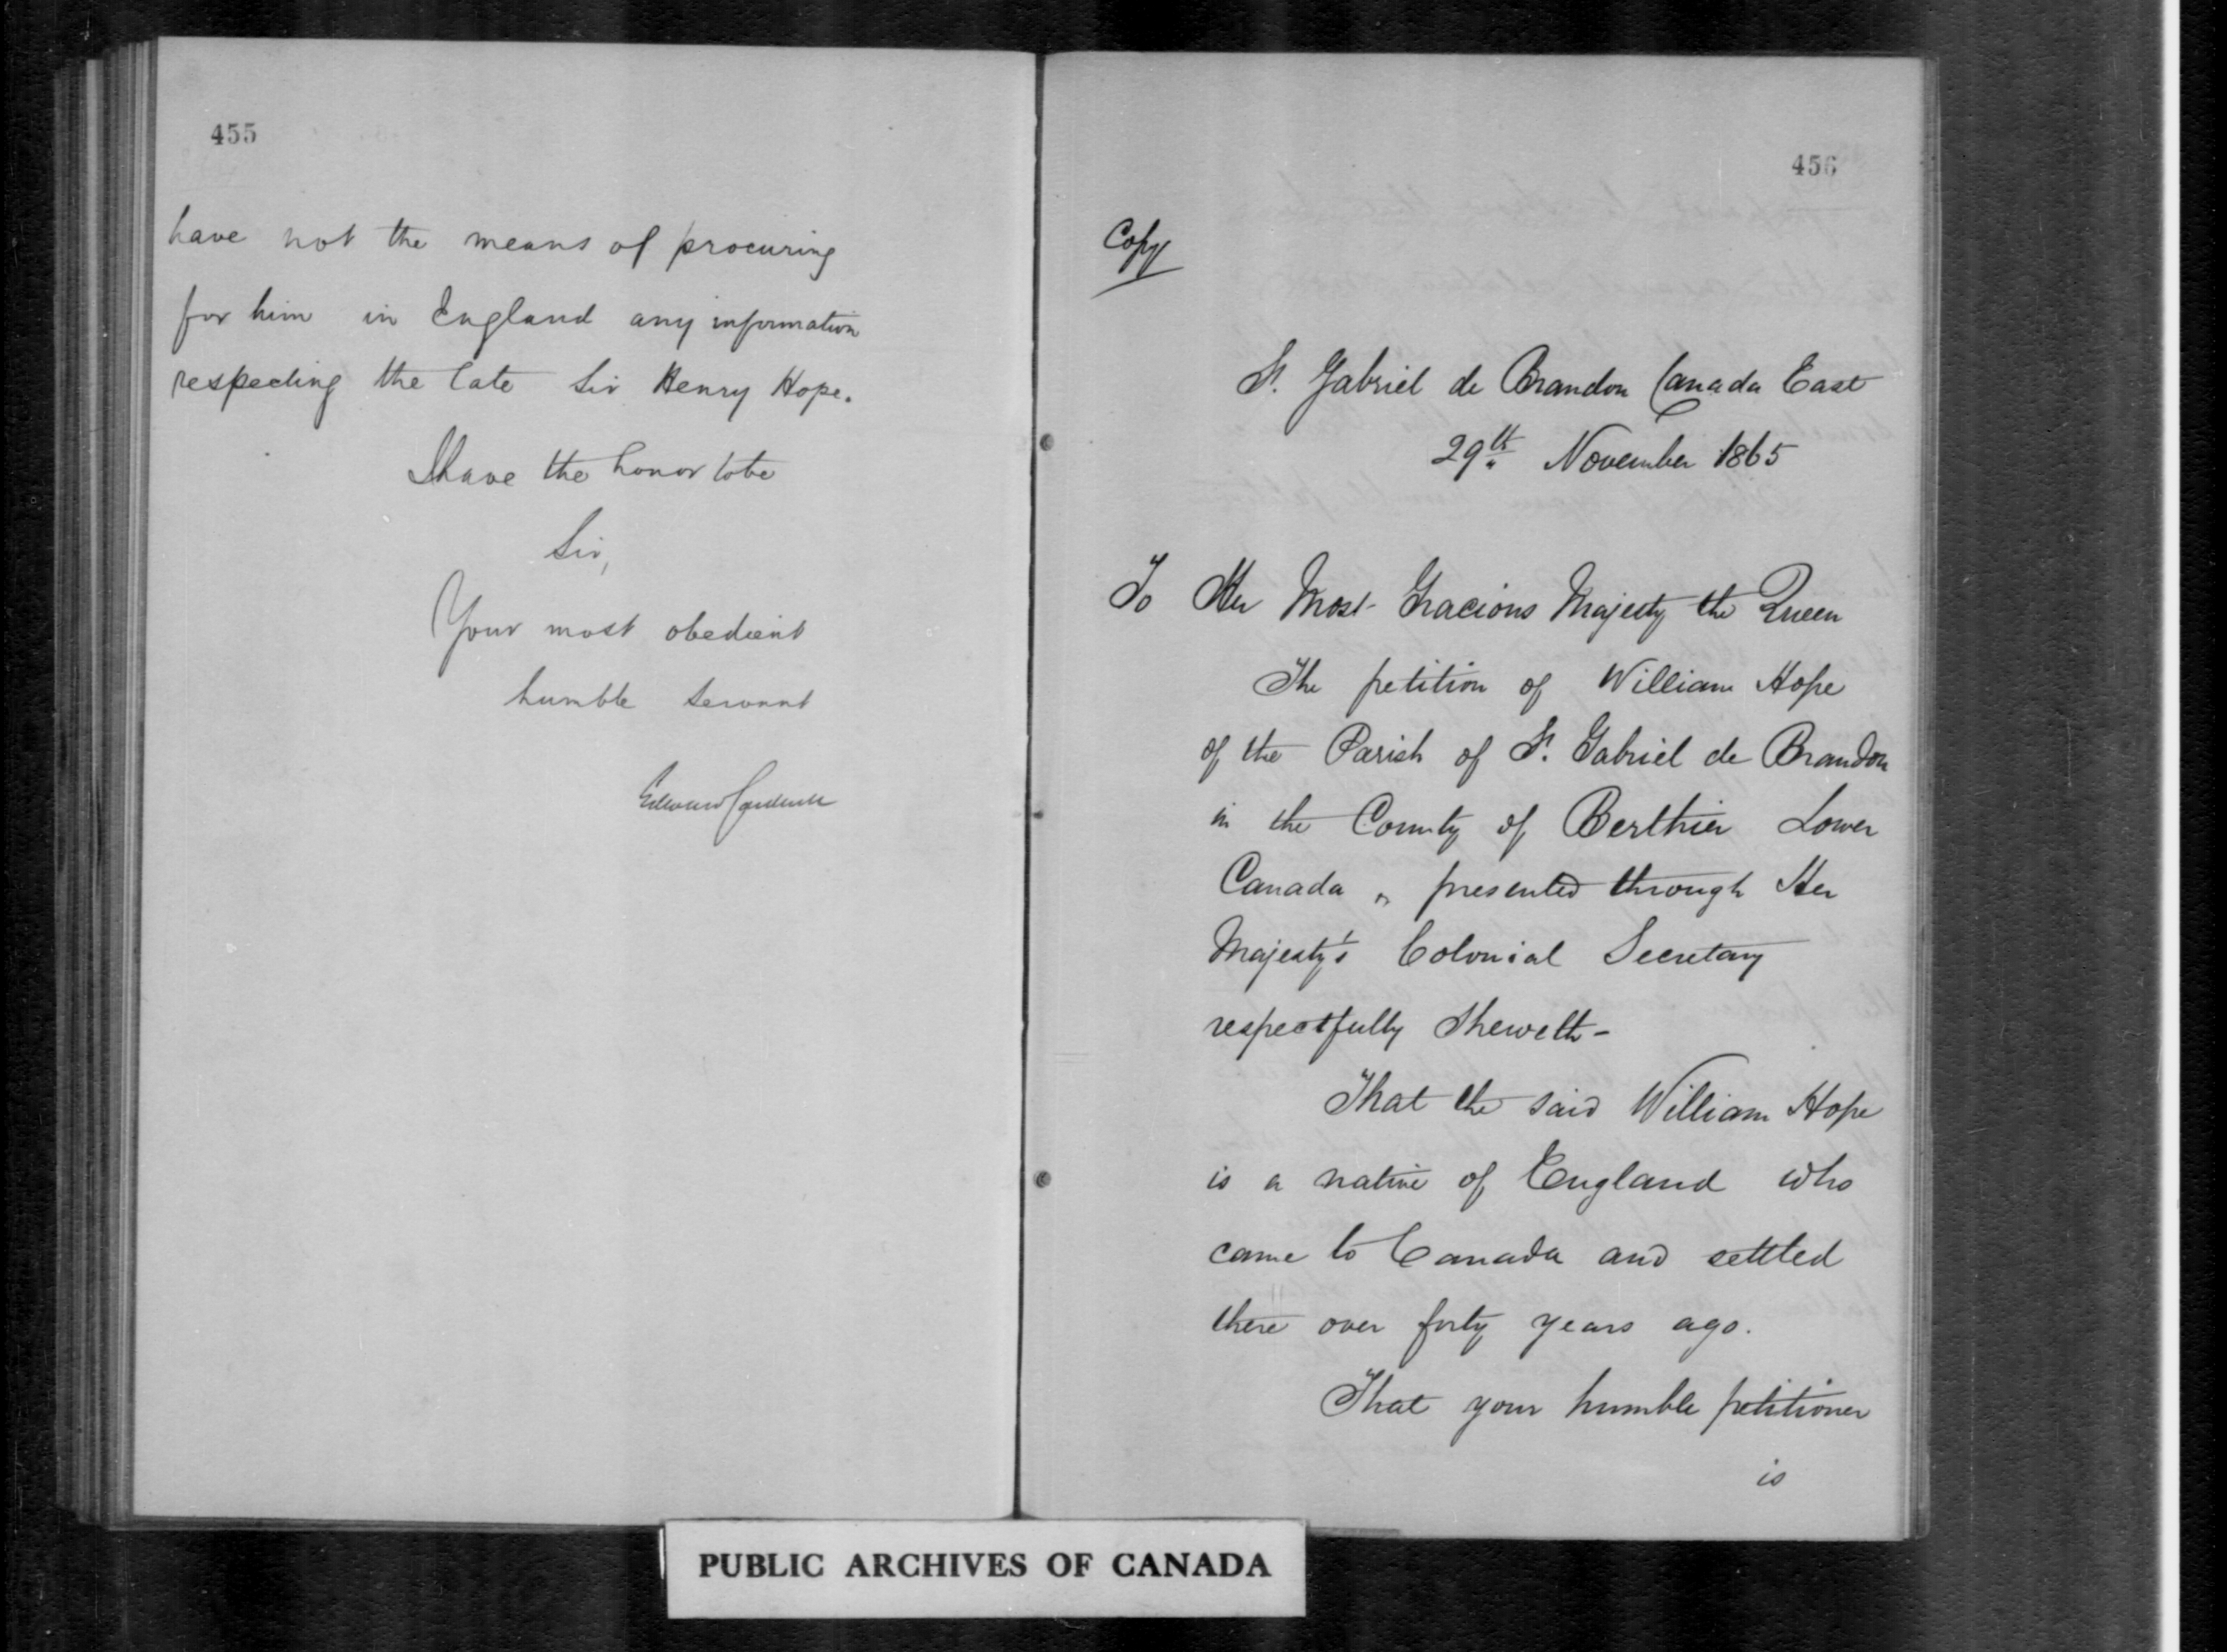 455
have not the means of procuring
for him in England any information
respecting the late Sir Henry Hope.
I have the honor to be
Sir,
Your most obedient
humble servant
Edward Cardwell
456
Copy
St. Gabriel de Brandon Canada East
29th November 1865
To Her Most Gracious Majesty the Queen
The petition of William Hope
of the Parish of St. Gabriel de Brandon
in the County of Berthier Lower
Canada, presented through Her
Majesty's Colonial Secretary
respectfully Sheweth-
That the said William Hope
is a native of England who
came to Canada and settled
there over forty years ago.
That your humble petitioner
is
PUBLIC ARCHIVES OF CANADA